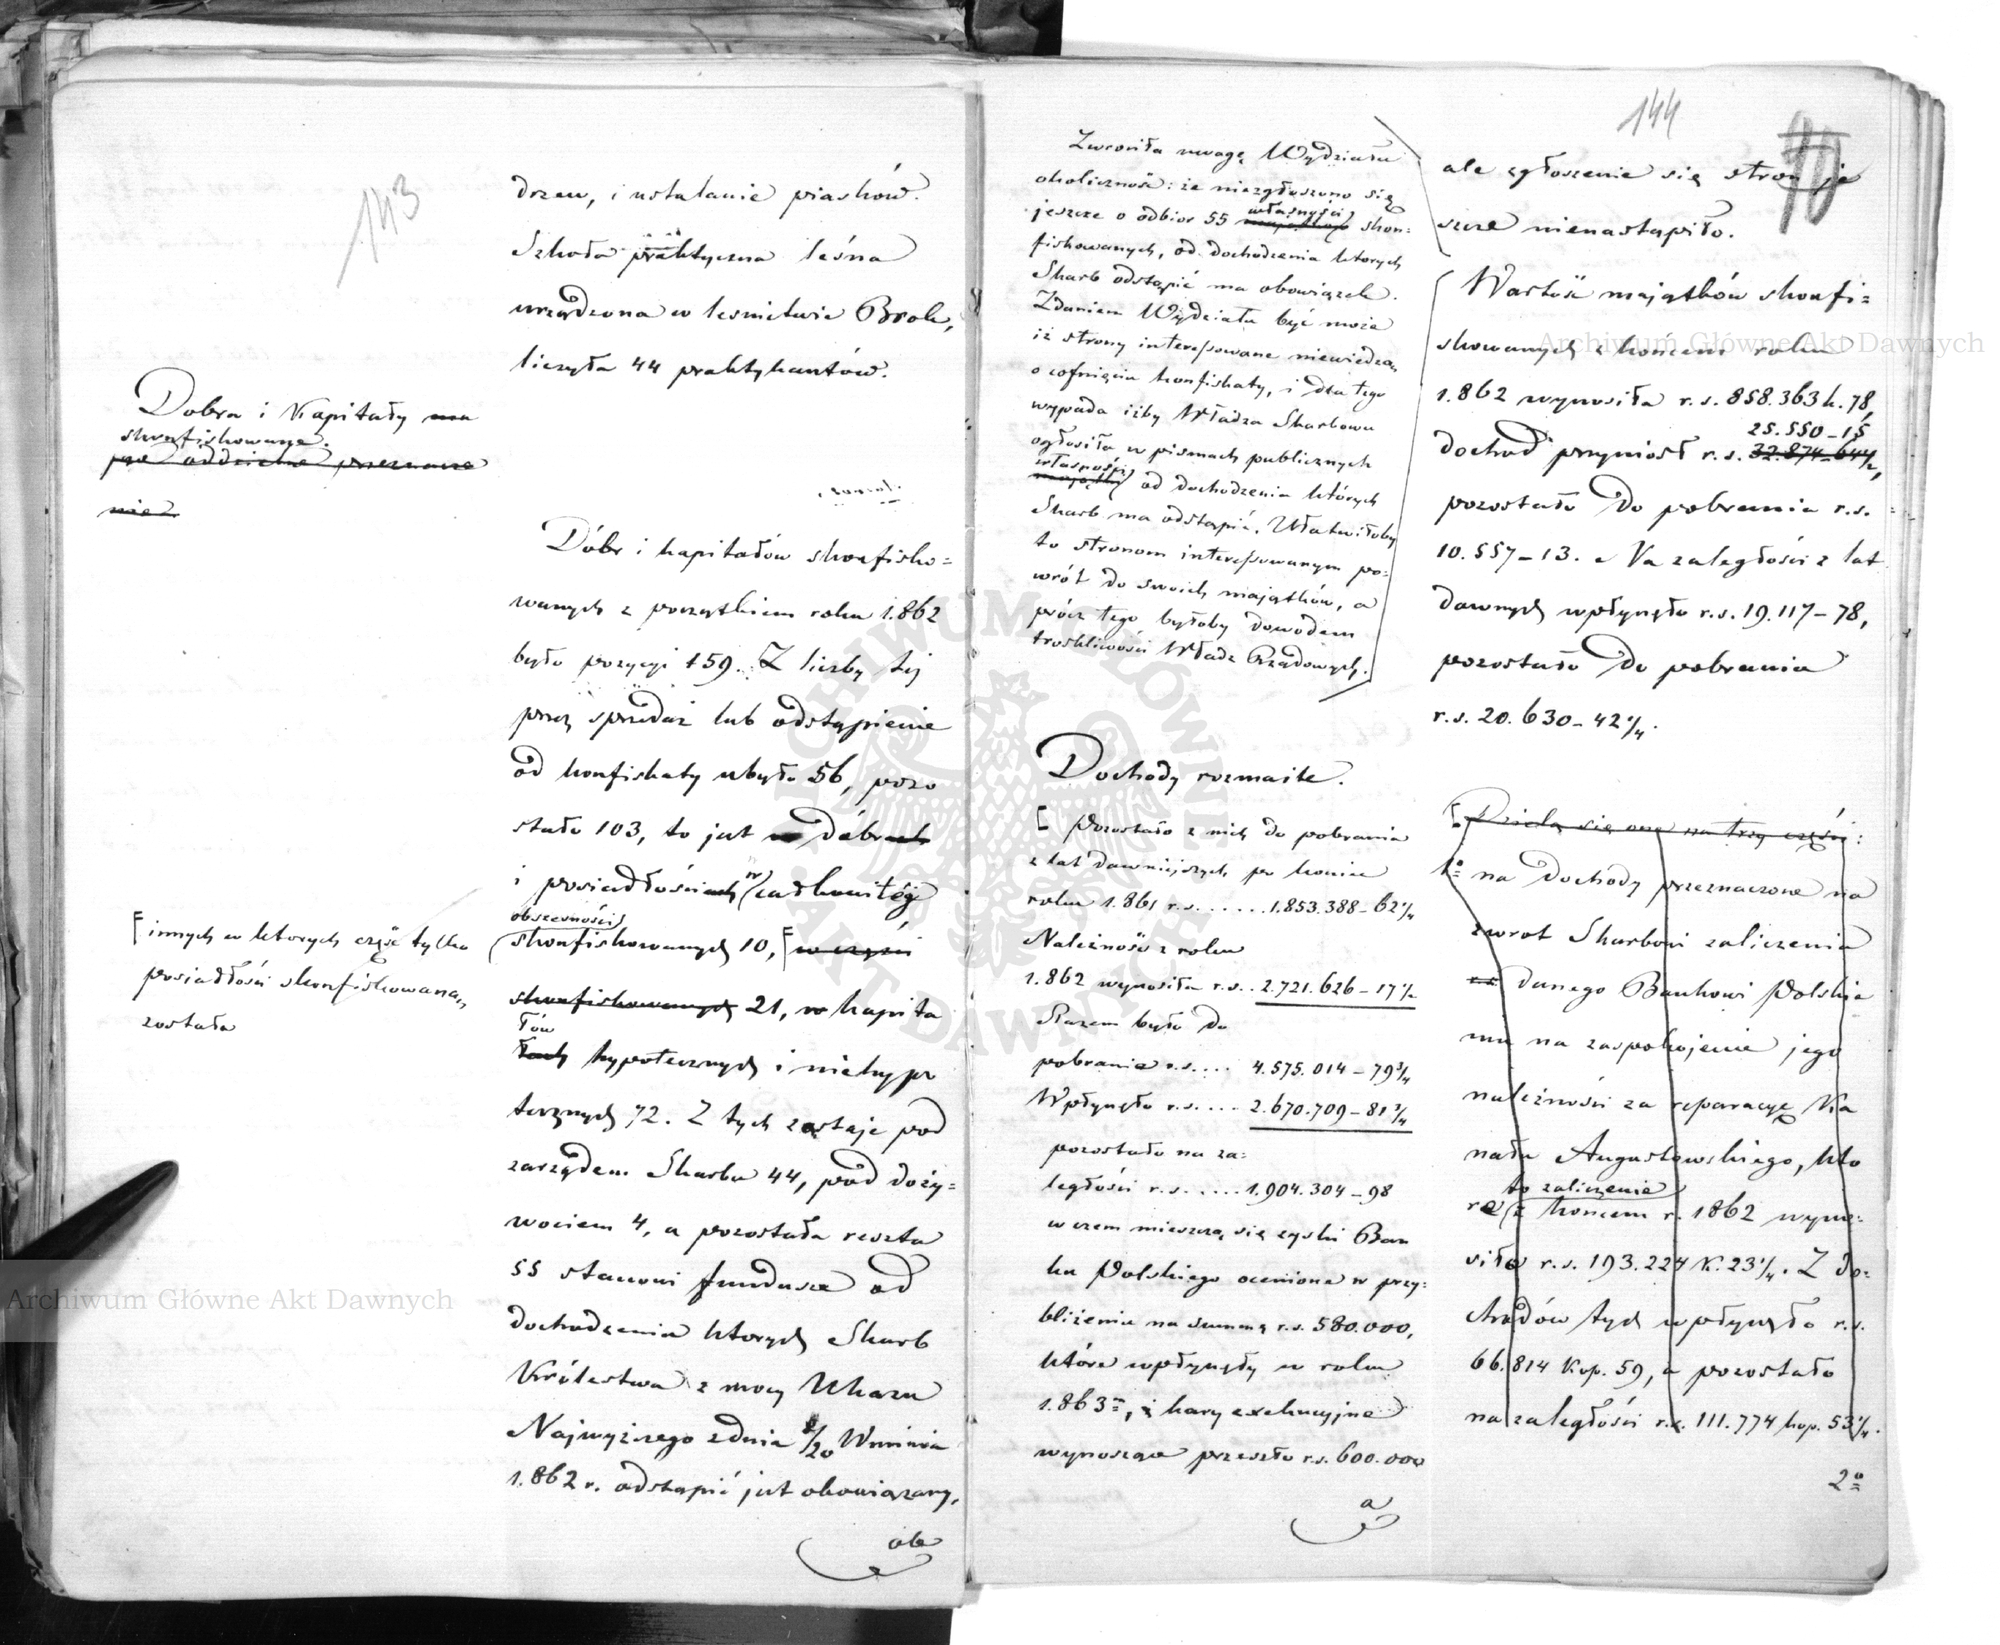 143
drzew, i ustalanie piasków.
Szkoła praktyczna leśna
urządzona w leśnictwie Brok,
liczyła 44 praktykantów.
Dobra i Kapitały na
skonfiskowane.
oddzielne przeznacze
nie.
Dóbr i kapitałów skonfisko=
wanych z początkiem roku 1.862
było pozycyi 159. Z liczby tej
przez sprzedaż lub odstąpienie
od konfiskaty ubyło 56, pozo
stało 103, to jest w dóbrach
i posiadłościach w całkowitéj
obszerności
skonfiskowanych 10, [w części
[innych w ktorych część tylko
posiadłości skonfiskowaną
została
skonfiskowanych 21, w kapita
łów
łach hypotecznych i niehypo
tecznych 72. Z tych zostaje pod
zarządem Skarbu 44, pod doży=
wociem 4, a pozostała reszta
55 stanowi fundusze od
dochodzenia ktorych Skarb
Królestwa z mocy Ukazu
Najwyższego z dnia 8/20 Września
1.862 r. odstąpić jest obowiązany,
ale
144
70
Zwrociła uwagę Wydziału
okoliczność: że niezgłoszono się
jeszcze o odbior 55 własności skon=
fiskowanych, od dochodzenia ktorych
Skarb odstąpić ma obowiązek.
Zdaniem Wydziału być może
iż strony interessowane niewiedzą
o cofnięciu konfiskaty, i dla tego
wypada iżby Władza Skarbowa
ogłosiła w pismach publicznych
własności
majątki od dochodzenia których
Skarb ma odstąpić. Ułatwiłoby
to stronom interessowanym po=
wrót do swoich majątków, a
prócz tego byłoby dowodem
troskliwości Władz Rządowych.
Dochody rozmaite.
[ Pozostało z nich do pobrania
z lat dawniejszych po koniec
roku 1.861 r.s. ...... 1.853.388–62 1/4
Należność z roku
1.862 wynosiła r.s. .. 2.721.626–17 1/2
Razem było do
pobrania r.s. .... 4.575.014–79 3/4
Wpłynęło r.s. .... 2.670.709–81 3/4
pozostało na za=
ległości r.s. ..... 1.904.304–98
w czem mieszczą się zyski Ban
ku Polskiego ocenione w przy=
bliżeniu na summę r.s. 580.000,
które wpłynęły w roku
1.863=, i kary exekucyjne
wynoszące przeszło r.s. 600.000
a
ale zgłoszenie się stron je
szcze nienastąpiło.
Wartość majątków skonfi=
skowanych z końcem roku
1.862 wynosiła r.s. 858.363 k. 78,
25.550–15
dochod przyniosł r.s. 32.874–64 1/2,
pozostało do pobrania r.s.
10.557–13. Na zaległości z lat
dawnych wpłynęło r.s. 19.117–78,
pozostało do pobrania
r.s. 20.630–42 1/4.
[Dzielą się one na trzy części:
1º na dochody przeznaczone na
zwrot Skarbowi zaliczenia
r.s. danego Bankowi Polskie
mu na zaspokojenie jego
należności za reparacyę Ka
nału Augustowskiego, kto
to zaliczenie
re z koncem r. 1862 wyno=
siło r.s. 193.224 K. 23 1/4. Z do=
chodów tych wpłynęło r.s.
66.814 Kop. 59, a pozostało
na zaległości r.s. 111.774 kop. 53 1/4.
2º
Archiwum Główne Akt Dawnych
Archiwum Główne Akt Dawnych
ARCHIWUM GŁÓWNE AKT DAWNYCH